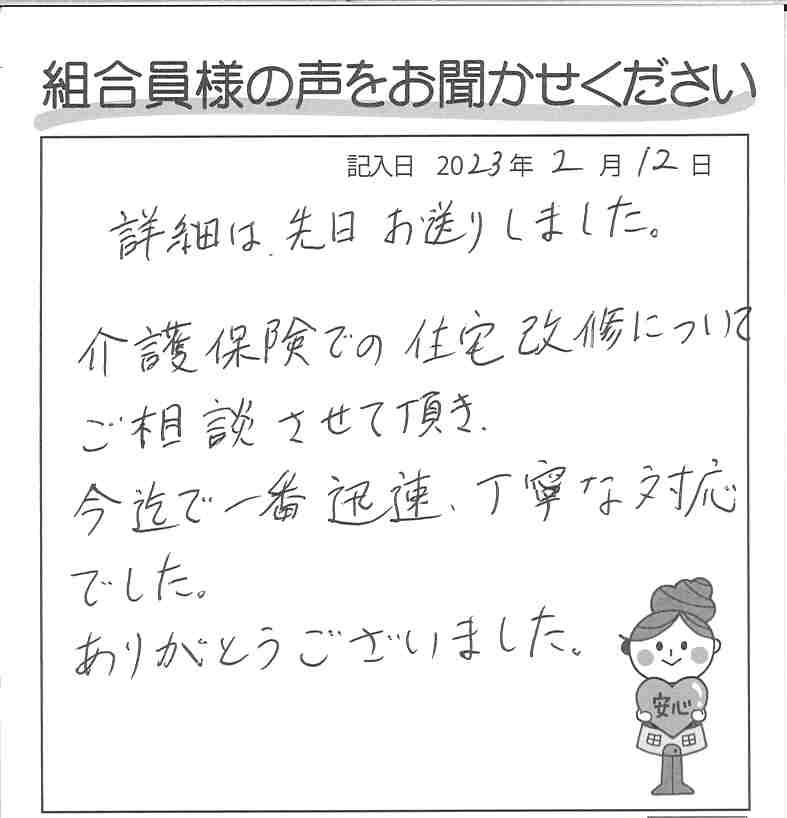 組合員様の声をお聞かせください
記入日 2023年 2 月 12 日
詳細は、先日 お送りしました。
介護保険での住宅改修について
ご相談させて頂き、
今迄で一番迅速、丁寧な対応
でした。
ありがとうございました。
安心